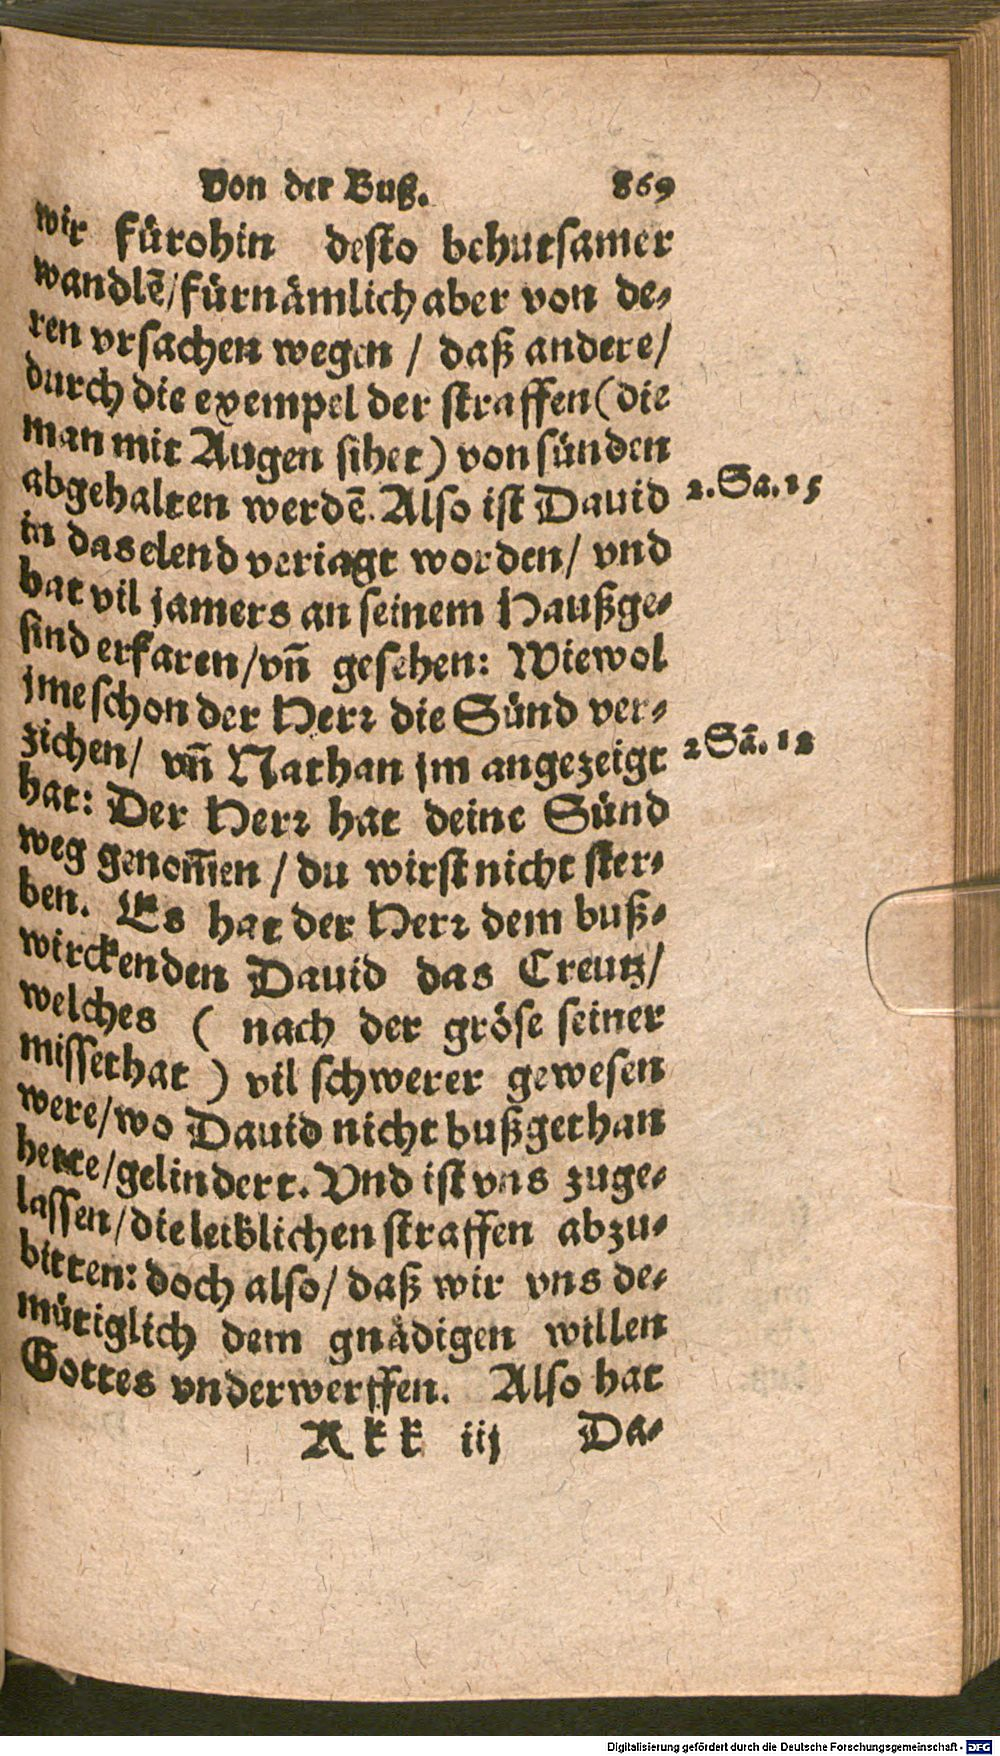 Von der Buß. 869
wir fürohin desto behutsamer
wandlẽ/fürnämlich aber von de-
ren vrsachen wegen / daß andere/
durch die exempel der straffen (die
man mit Augen sihet) von sünden
abgehalten werdẽ. Also ist Dauid
2. Sa. 15
in das elend veriagt worden/ vnd
hat vil jamers an seinem Haußge-
sind erfaren/vñ gesehen: Wiewol
jme schon der Herr die Sünd ver-
zichen/ vñ Nathan jm angezeigt
2 Sã. 12
hat: Der Herr hat deine Sünd
weg genom̃en / du wirst nicht ster-
ben. Es hat der Herr dem buß-
wirckenden Dauid das Creutz/
welches ( nach der gröse seiner
missethat ) vil schwerer gewesen
were/wo Dauid nicht buß gethan
hette/gelindert. Vnd ist vns zuge-
lassen/die leiblichen straffen abzu-
bitten: doch also/ daß wir vns de-
mütiglich dem gnädigen willen
Gottes vnderwerffen. Also hat
Kkk iij Da-
Digitalisierung gefördert durch die Deutsche Forschungsgemeinschaft - DFG